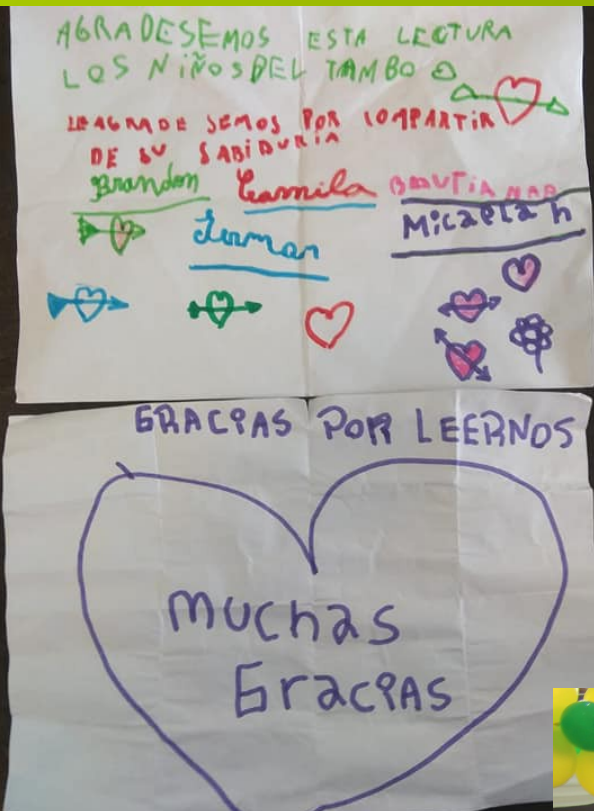 AGRADESEMOS ESTA LECTURA
LOS NiÑOS DEL TAMBO
LE AGRADE SEMOS POR COMPARTIR
DE SU SABIDURIA
Brandon Camila
Micaela h
GRACIAS POR LEERNOS
muchas
Gracias